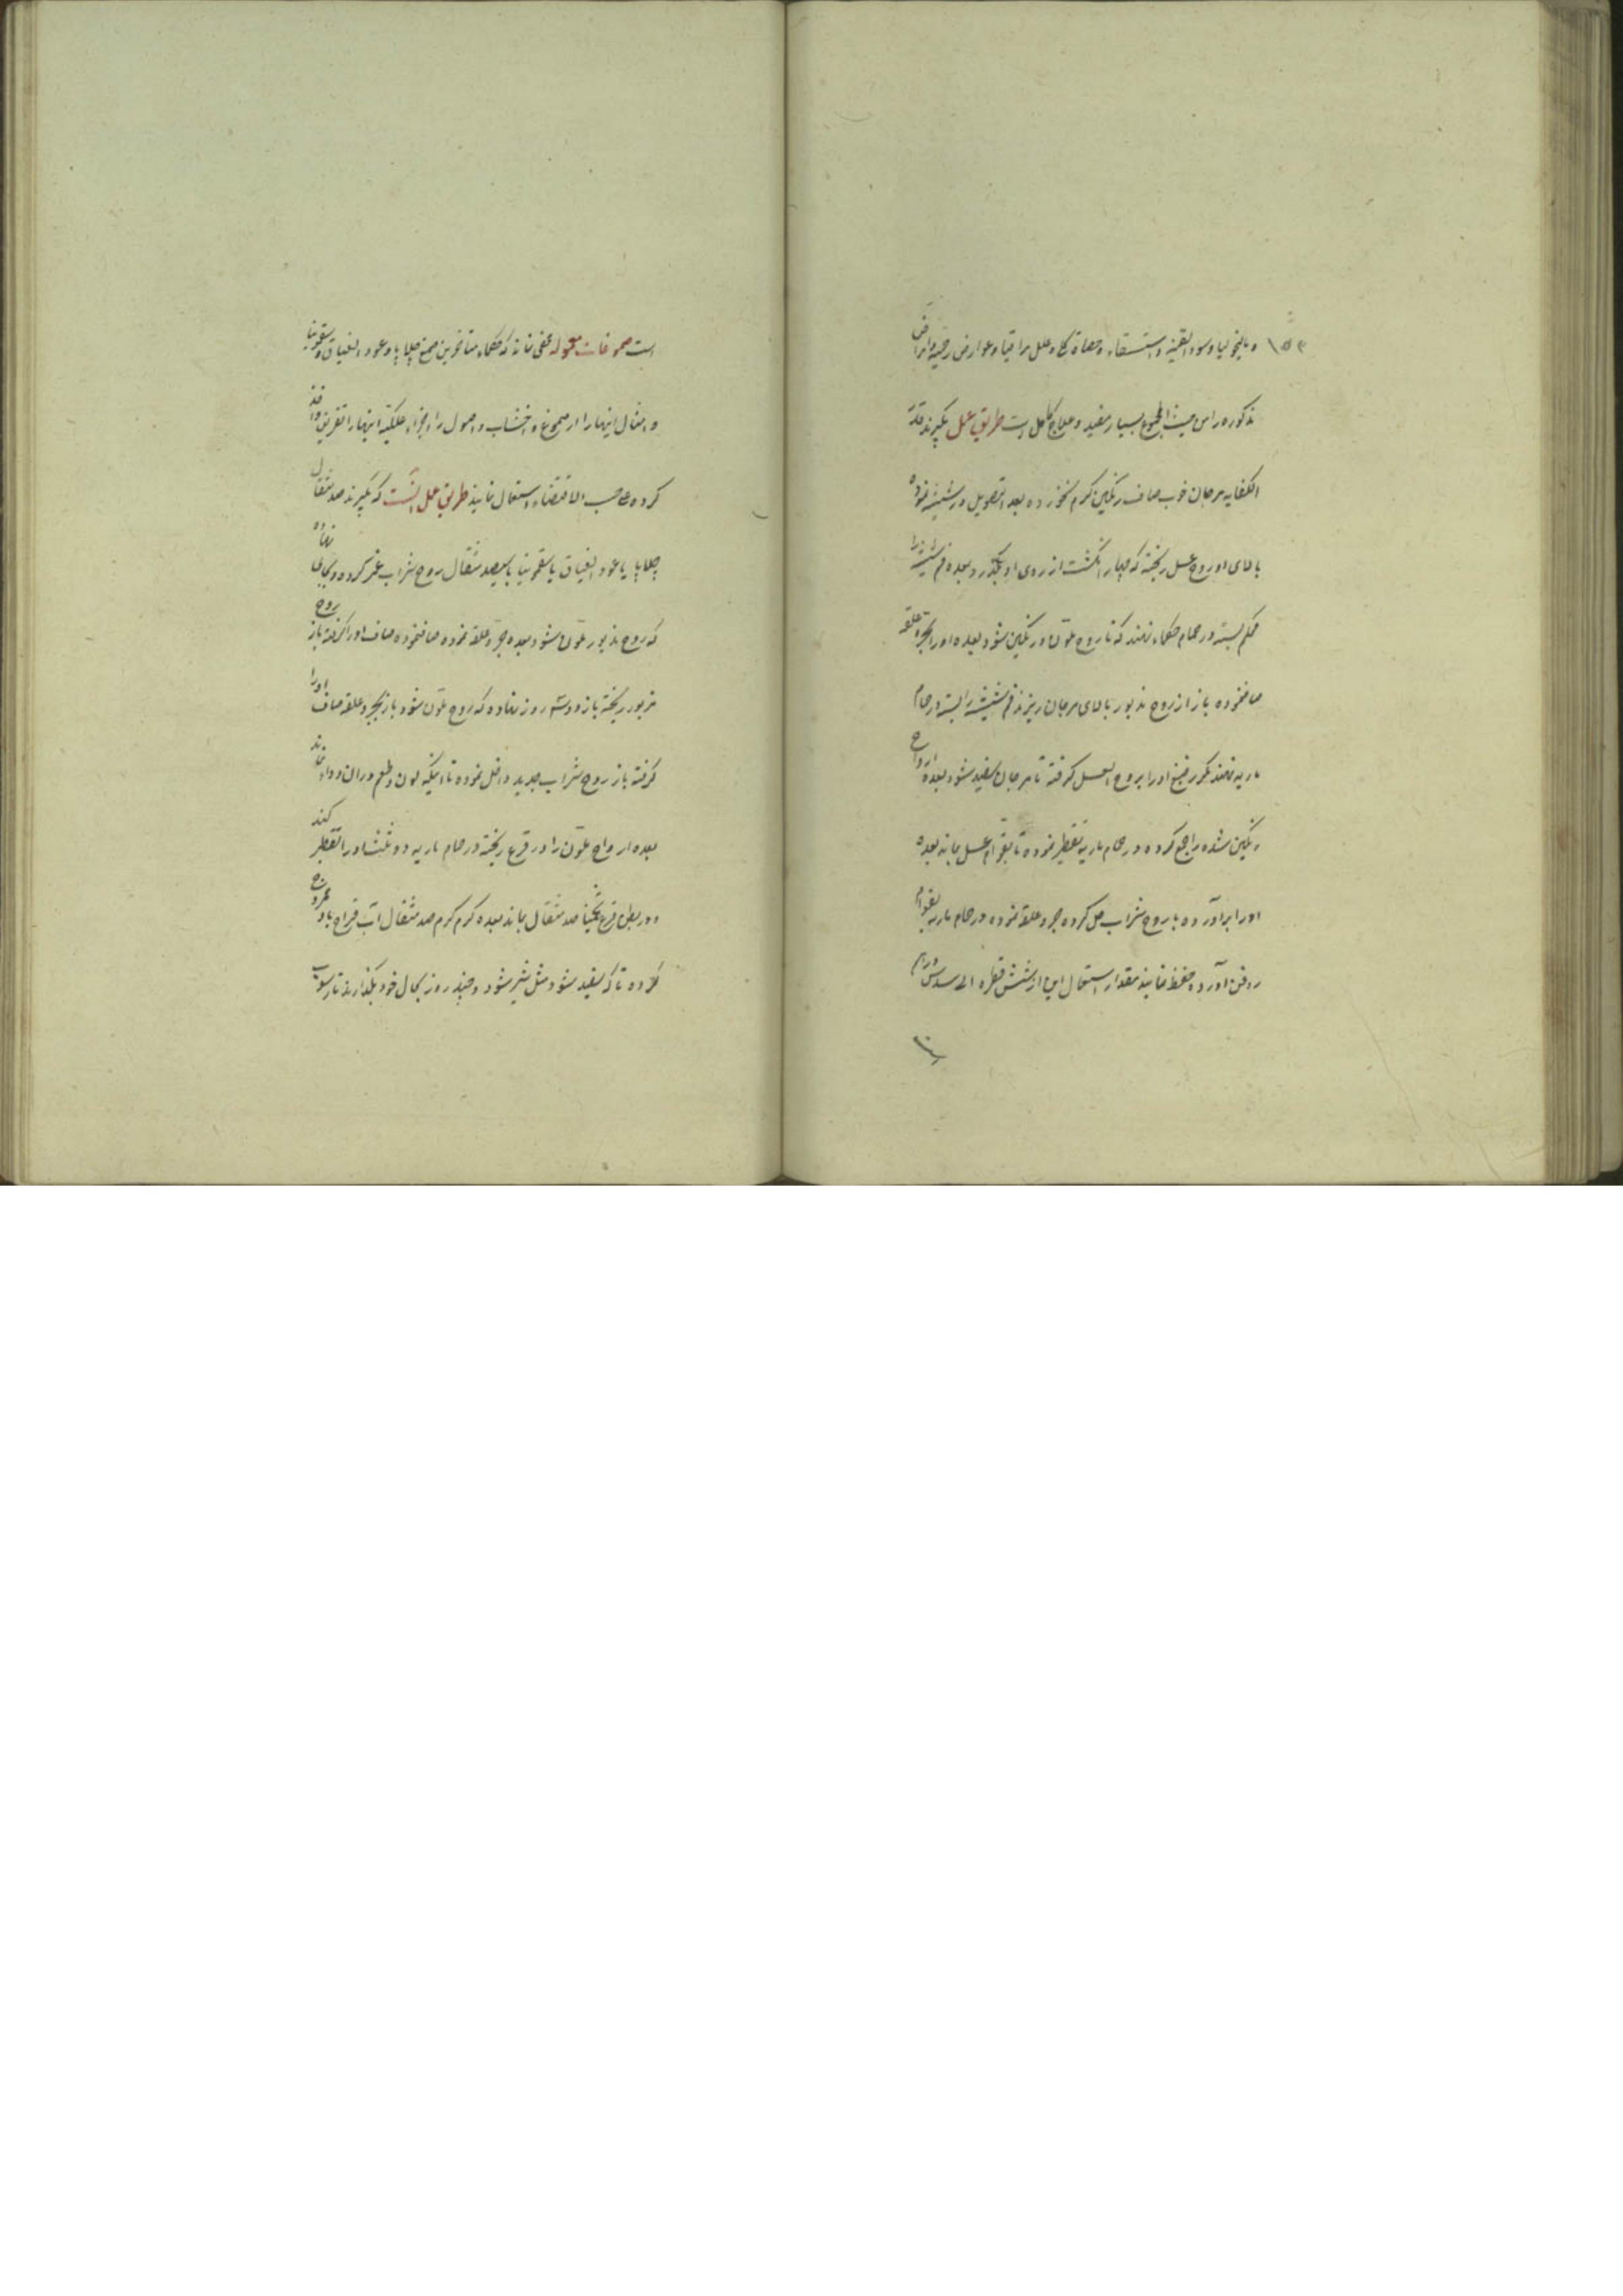 ۱۵۳
و مالیخولیا و سوء القنیه و استسقاء و حصاة کلی و علل مراقیا و عوارض رحمیه و امراض
مذکوره را من حیث المجموع بسیار مفید و علاج کامل است طریق عمل بگیرند قدر
الکفایه مرجان خوب صاف رنگین کرم نخورده بعد التصویل در شیشه نموده
بالای او روح عسل ریخته که چهار انگشت از روی او بگذرد بعده فم شیشه را
محکم بسته در حمام حکماء نهند که تا روح ملون و رنگین شود بعده او را بجر علقه
صاف نموده باز از روح مذبور بالای مرجان ریزند فم شیشه را بسته در حمام
ماریه نهند مکرر صبغ او را بروح العسل گرفته تا مرجان سفید شود بعده ارواح
رنگین شده را جمع کرده در حمام ماریه تقطیر نموده تا بقوام عسل بماند بعده
او را برآورده با روح شراب حل کرده جر علقه نموده در حمام ماریه بقوام
روغن آورده حفظ نمایند مقدار استعمال این از شش قطره الی سدس درهم
است
است صموغات معموله مخفی نماند که حکماء متاخرین صمغ چلاپا و عود الغیاق و سقمونیا
و امثال اینها را از صموغ و اخشاب و اصول را اجزاء علکیه اینها را تفریق و اخذ
کرده علی حسب الاقتضاء استعمال نمایند طریق عمل آنست که بگیرند صد مثقال
چلاپا یا عود الغیاق یا سقمونیا با سیصد مثقال روح شراب غمر کرده و بجای نهاده
که روح مذبور ملون شود بعده جر علقه نموده صاف نموده صاف او را گرفته باز روح
مزبور ریخته باز دو سه روز نهاده که روح ملون شود باز بجر علقه صاف او را
گرفته باز روح شراب جدید داخل نموده تا اینکه لون و طعم در آن دواء نماند
بعده ارواح ملون را در قرع ریخته در حمام ماریه دو ثلث او را تقطیر کند
و در بطن قرع تخمینا صد مثقال بماند بعده گرم گرم صد مثقال آب قراح باو ممزوج
کرده تا که سفید شود مثل شیر شود و چند روز بحال خود بگذارند تا رسوب